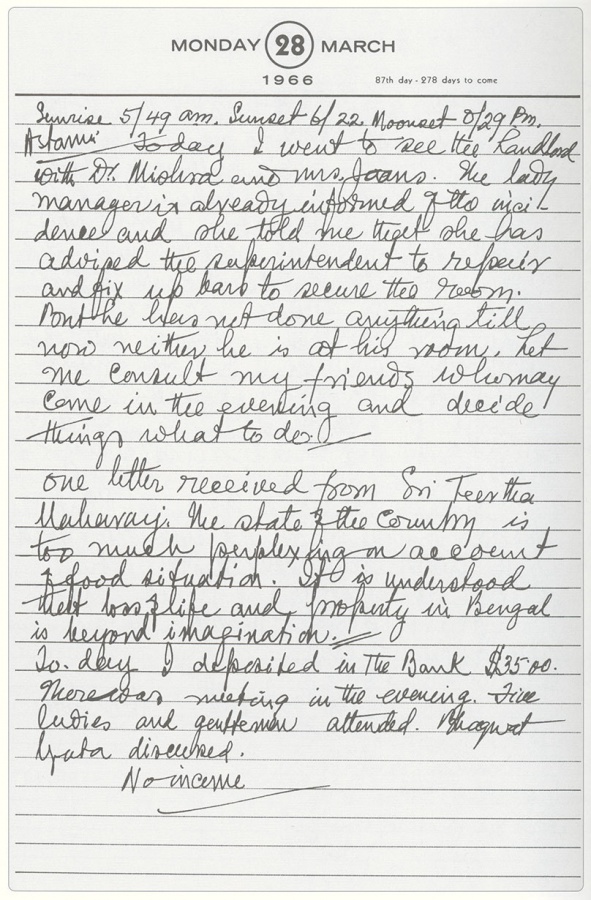 MONDAY 28 MARCH
1966
87th day - 278 days to come
Sunrise 5/49 am. Sunset 6/22 Moonset 0/29 Pm.
Astami Today I went to see the Landlord
with Dr. Mishra and Mrs. The lady
manager is already informed of the inci-
dence and she told me that she has
advised the superintendent to repair
and fix up bars to secure the room.
But he has not done anything till
now neither he is at his room. Let
me consult my friends who may
come in the evening and decide
things what to do.
One letter received from Sri Teertha
Maharaj. The state of the Country is
too much perplexing on account
of food situation. It is understood
that loss of life and property in Bengal
is beyond imagination.
To-day I deposited in the Bank $35.00.
There was meeting in the evening. Five
ladies and gentlemen attended. Bhagwat
Gita discussed.
No income